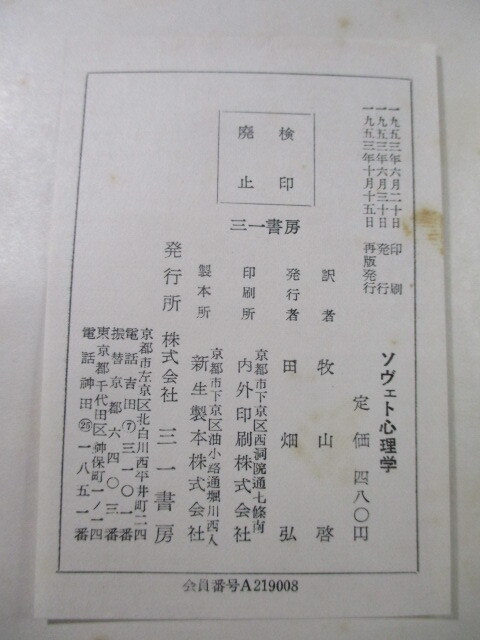 一九五三年六月二十日 印刷
一九五三年六月三十日 発行
一九五三年十月十五日 再版発行
ソヴェト心理学
定価 四八〇円
検印
廃止
三一書房
訳者 牧山啓
発行者 田畑弘
京都市下京区西洞院通七條南
印刷所 内外印刷株式会社
京都市下京区油小路通堀川西入
製本所 新生製本株式会社
発行所 株式会社 三一書房
京都市左京区北白川西平井町二四
電話吉田⑦三一〇一番
振替京都六四〇三番
東京都千代田区神保町一ノ一四
電話神田㉕一八五一番
会員番号A219008